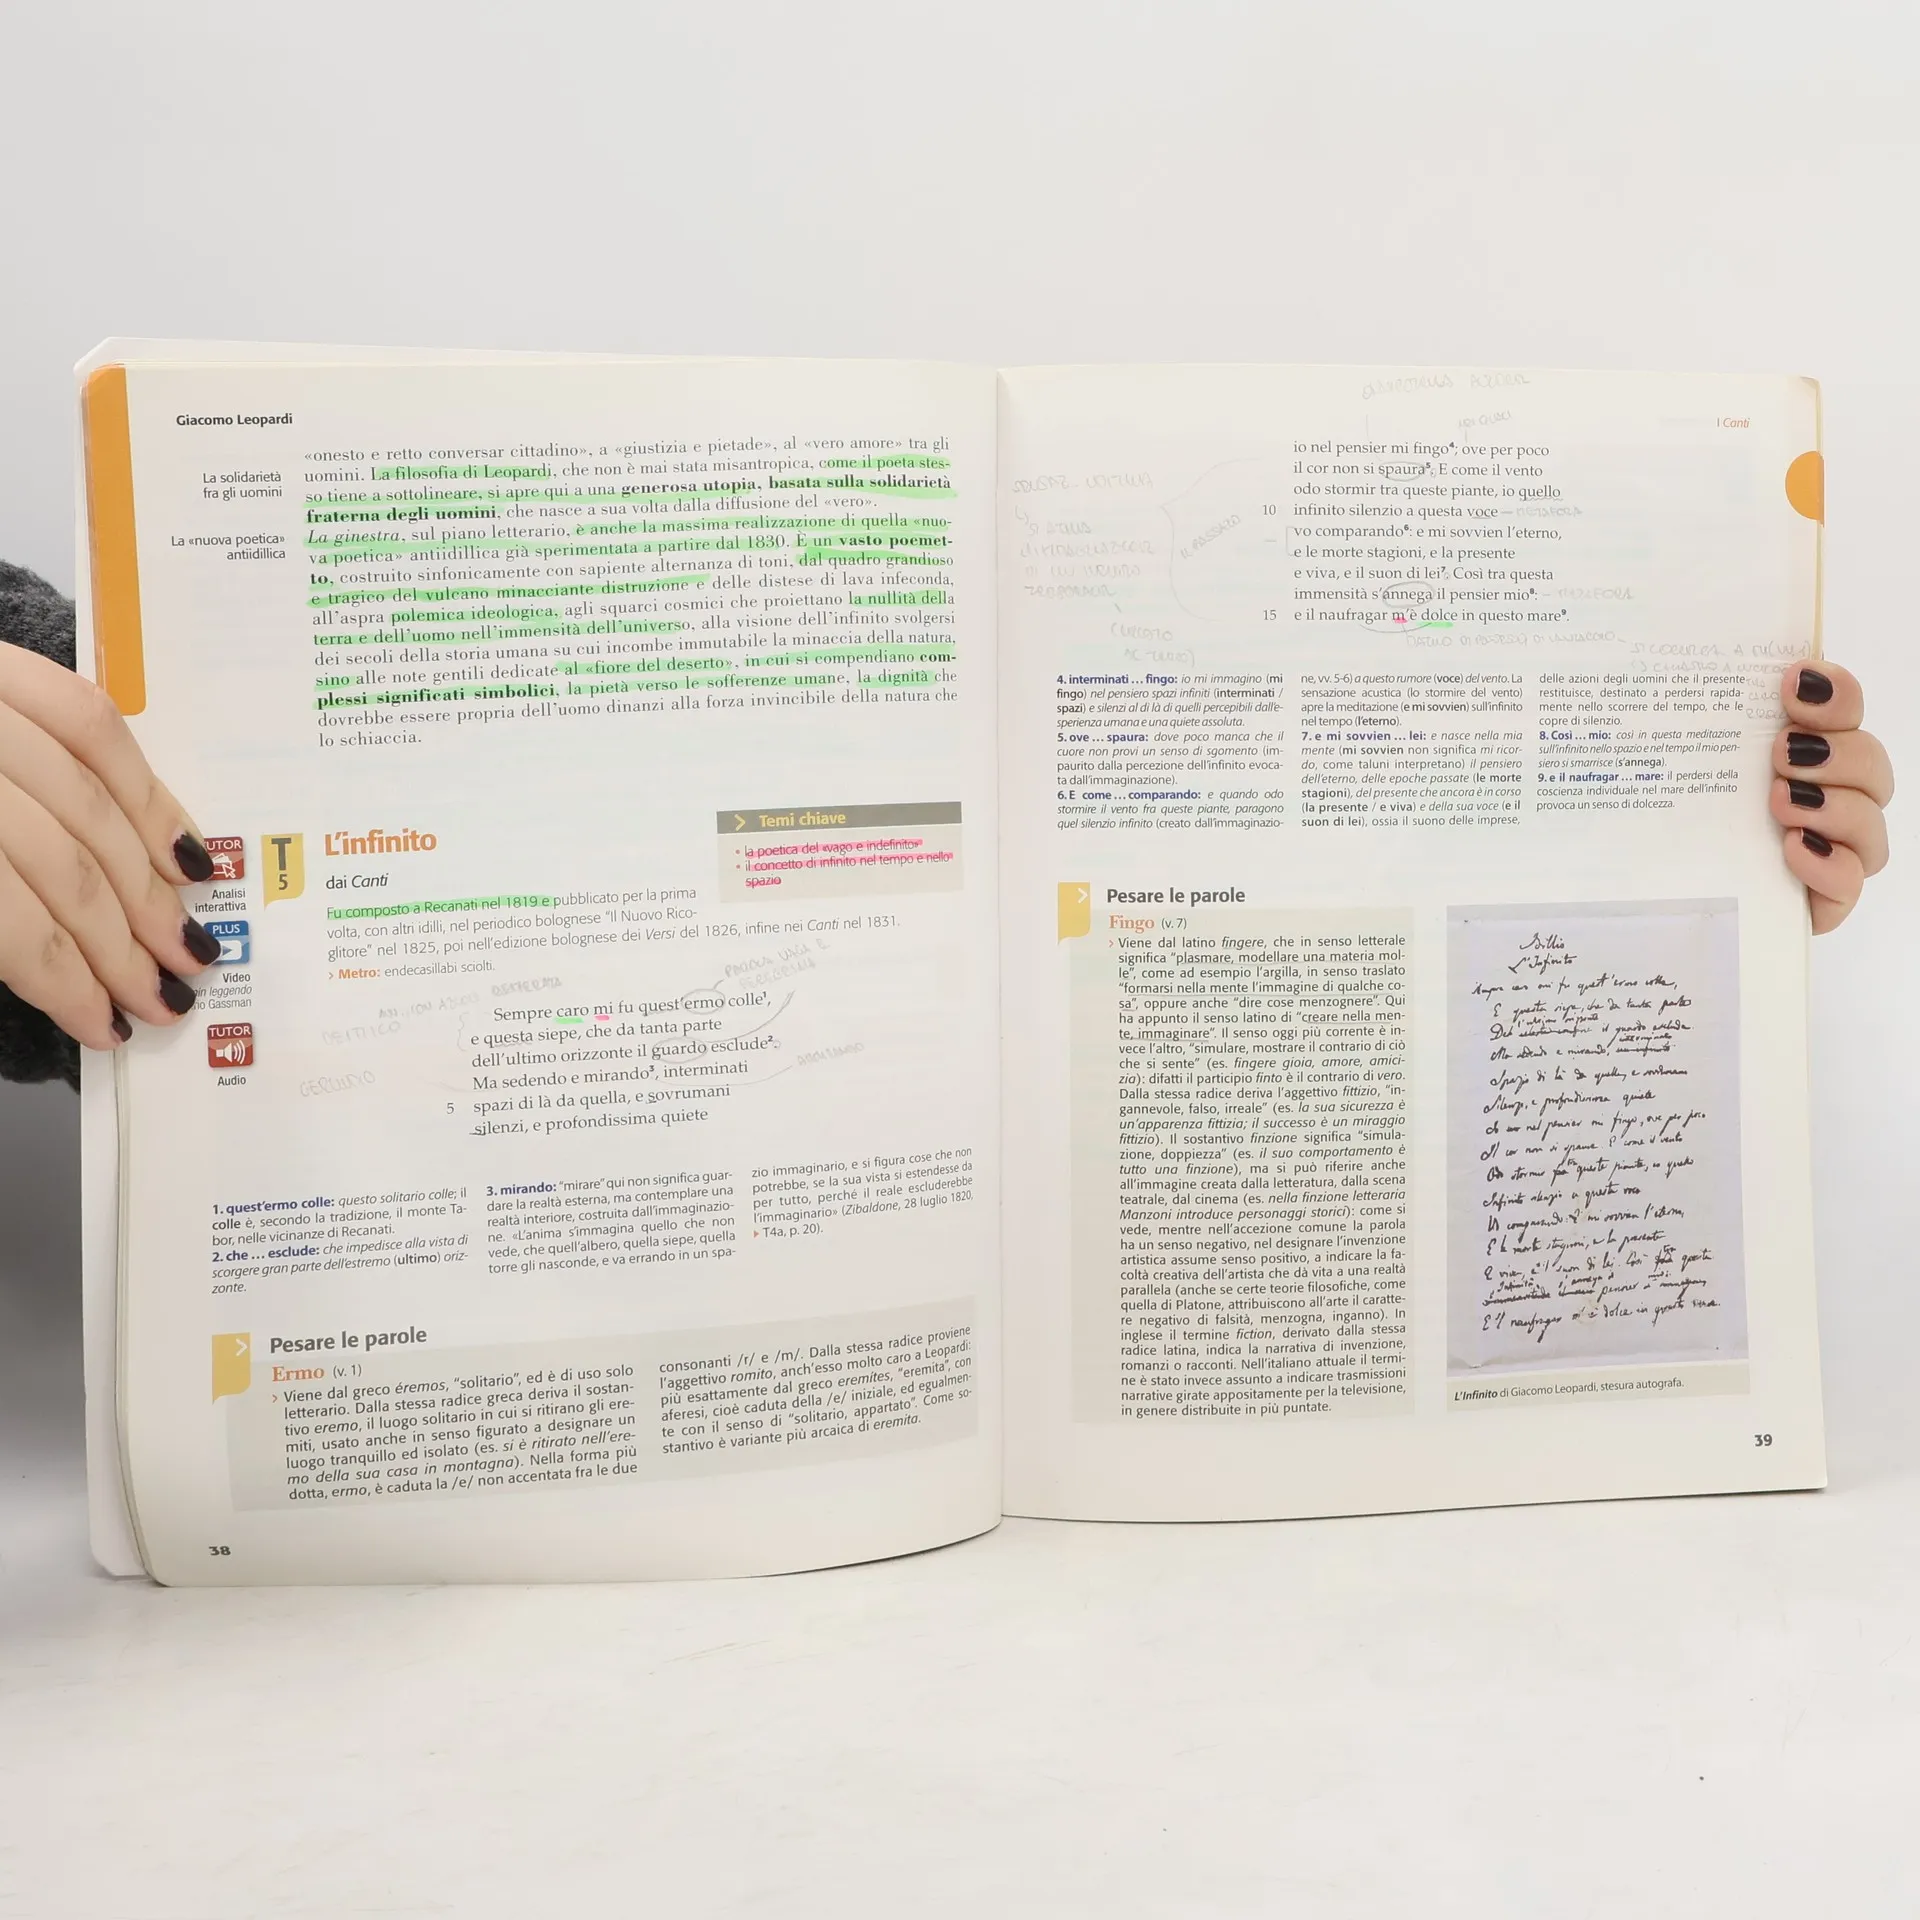 Giacomo Leopardi
La solidarietà
fra gli uomini
La «nuova poetica»
antiidillica
«onesto e retto conversar cittadino», a «giustizia e pietade», al «vero amore» tra gli
uomini. La filosofia di Leopardi, che non è mai stata misantropica, come il poeta stes-
so tiene a sottolineare, si apre qui a una generosa utopia, basata sulla solidarietà
fraterna degli uomini, che nasce a sua volta dalla diffusione del «vero».
La ginestra, sul piano letterario, è anche la massima realizzazione di quella «nuo-
va poetica» antiidillica già sperimentata a partire dal 1830. È un vasto poemet-
to, costruito sinfonicamente con sapiente alternanza di toni, dal quadro grandioso
e tragico del vulcano minacciante distruzione e delle distese di lava infeconda,
all'aspra polemica ideologica, agli squarci cosmici che proiettano la nullità della
terra e dell'uomo nell'immensità dell'universo, alla visione dell'infinito svolgersi
dei secoli della storia umana su cui incombe immutabile la minaccia della natura,
sino alle note gentili dedicate al «fiore del deserto», in cui si compendiano com-
plessi significati simbolici, la pietà verso le sofferenze umane, la dignità che
dovrebbe essere propria dell'uomo dinanzi alla forza invincibile della natura che
lo schiaccia.
TUTOR
Analisi
interattiva
PLUS
Video
leggendo
Gassman
TUTOR
Audio
T
5
L'infinito
dai Canti
Temi chiave
• la poetica del «vago e indefinito»
• il concetto di infinito nel tempo e nello
spazio
Fu composto a Recanati nel 1819 e pubblicato per la prima
volta, con altri idilli, nel periodico bolognese "Il Nuovo Rico-
glitore" nel 1825, poi nell'edizione bolognese dei Versi del 1826, infine nei Canti nel 1831.
> Metro: endecasillabi sciolti.
PAROLA VAGA E
DEITTICO
GERUNDIO
Sempre caro mi fu quest'ermo colle¹,
e questa siepe, che da tanta parte
dell'ultimo orizzonte il guardo esclude².
Ma sedendo e mirando³, interminati
5 spazi di là da quella, e sovrumani
silenzi, e profondissima quiete
1. quest'ermo colle: questo solitario colle; il
colle è, secondo la tradizione, il monte Ta-
bor, nelle vicinanze di Recanati.
2. che ... esclude: che impedisce alla vista di
scorgere gran parte dell'estremo (ultimo) oriz-
zonte.
3. mirando: "mirare" qui non significa guar-
dare la realtà esterna, ma contemplare una
realtà interiore, costruita dall'immaginazio-
ne. «L'anima s'immagina quello che non
vede, che quell'albero, quella siepe, quella
torre gli nasconde, e va errando in un spa-
zio immaginario, e si figura cose che non
potrebbe, se la sua vista si estendesse da
per tutto, perché il reale escluderebbe
l'immaginario» (Zibaldone, 28 luglio 1820,
▸ T4a, p. 20).
Pesare le parole
Ermo (v. 1)
> Viene dal greco éremos, "solitario", ed è di uso solo
letterario. Dalla stessa radice greca deriva il sostan-
tivo eremo, il luogo solitario in cui si ritirano gli ere-
miti, usato anche in senso figurato a designare un
luogo tranquillo ed isolato (es. si è ritirato nell'ere-
mo della sua casa in montagna). Nella forma più
dotta, ermo, è caduta la /e/ non accentata fra le due
consonanti /r/ e /m/. Dalla stessa radice proviene
l'aggettivo romito, anch'esso molto caro a Leopardi:
più esattamente dal greco eremítes, "eremita", con
aferesi, cioè caduta della /e/ iniziale, ed egualmen-
te con il senso di "solitario, appartato". Come so-
stantivo è variante più arcaica di eremita.
38
I Canti
io nel pensier mi fingo⁴; ove per poco
il cor non si spaura⁵. E come il vento
odo stormir tra queste piante, io quello
10 infinito silenzio a questa voce – METAFORA
vo comparando⁶: e mi sovvien l'eterno,
e le morte stagioni, e la presente
e viva, e il suon di lei⁷. Così tra questa
immensità s'annega il pensier mio⁸: – METAFORA
15 e il naufragar m'è dolce in questo mare⁹.
IL PASSATO
4. interminati ... fingo: io mi immagino (mi
fingo) nel pensiero spazi infiniti (interminati /
spazi) e silenzi al di là di quelli percepibili dall'e-
sperienza umana e una quiete assoluta.
5. ove ... spaura: dove poco manca che il
cuore non provi un senso di sgomento (im-
paurito dalla percezione dell'infinito evoca-
ta dall'immaginazione).
6. E come ... comparando: e quando odo
stormire il vento fra queste piante, paragono
quel silenzio infinito (creato dall'immaginazio-
ne, vv. 5-6) a questo rumore (voce) del vento. La
sensazione acustica (lo stormire del vento)
apre la meditazione (e mi sovvien) sull'infinito
nel tempo (l'eterno).
7. e mi sovvien ... lei: e nasce nella mia
mente (mi sovvien non significa mi ricor-
do, come taluni interpretano) il pensiero
dell'eterno, delle epoche passate (le morte
stagioni), del presente che ancora è in corso
(la presente / e viva) e della sua voce (e il
suon di lei), ossia il suono delle imprese,
delle azioni degli uomini che il presente
restituisce, destinato a perdersi rapida-
mente nello scorrere del tempo, che le
copre di silenzio.
8. Così ... mio: così in questa meditazione
sull'infinito nello spazio e nel tempo il mio pen-
siero si smarrisce (s'annega).
9. e il naufragar ... mare: il perdersi della
coscienza individuale nel mare dell'infinito
provoca un senso di dolcezza.
Pesare le parole
Fingo (v. 7)
> Viene dal latino fingere, che in senso letterale
significa "plasmare, modellare una materia mol-
le", come ad esempio l'argilla, in senso traslato
"formarsi nella mente l'immagine di qualche co-
sa", oppure anche "dire cose menzognere". Qui
ha appunto il senso latino di "creare nella men-
te, immaginare". Il senso oggi più corrente è in-
vece l'altro, "simulare, mostrare il contrario di ciò
che si sente" (es. fingere gioia, amore, amici-
zia): difatti il participio finto è il contrario di vero.
Dalla stessa radice deriva l'aggettivo fittizio, "in-
gannevole, falso, irreale" (es. la sua sicurezza è
un'apparenza fittizia; il successo è un miraggio
fittizio). Il sostantivo finzione significa "simula-
zione, doppiezza" (es. il suo comportamento è
tutto una finzione), ma si può riferire anche
all'immagine creata dalla letteratura, dalla scena
teatrale, dal cinema (es. nella finzione letteraria
Manzoni introduce personaggi storici): come si
vede, mentre nell'accezione comune la parola
ha un senso negativo, nel designare l'invenzione
artistica assume senso positivo, a indicare la fa-
coltà creativa dell'artista che dà vita a una realtà
parallela (anche se certe teorie filosofiche, come
quella di Platone, attribuiscono all'arte il caratte-
re negativo di falsità, menzogna, inganno). In
inglese il termine fiction, derivato dalla stessa
radice latina, indica la narrativa di invenzione,
romanzi o racconti. Nell'italiano attuale il termi-
ne è stato invece assunto a indicare trasmissioni
narrative girate appositamente per la televisione,
in genere distribuite in più puntate.
L'Infinito
L'Infinito di Giacomo Leopardi, stesura autografa.
39